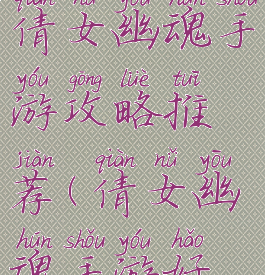 qiàn nǚ yōu hún shǒu
倩女幽魂手
yóu gōng lüè tuī
游攻略推
jiàn qiàn nǚ yōu
荐(倩女幽
hún shǒu yóu hǎo
魂手游好